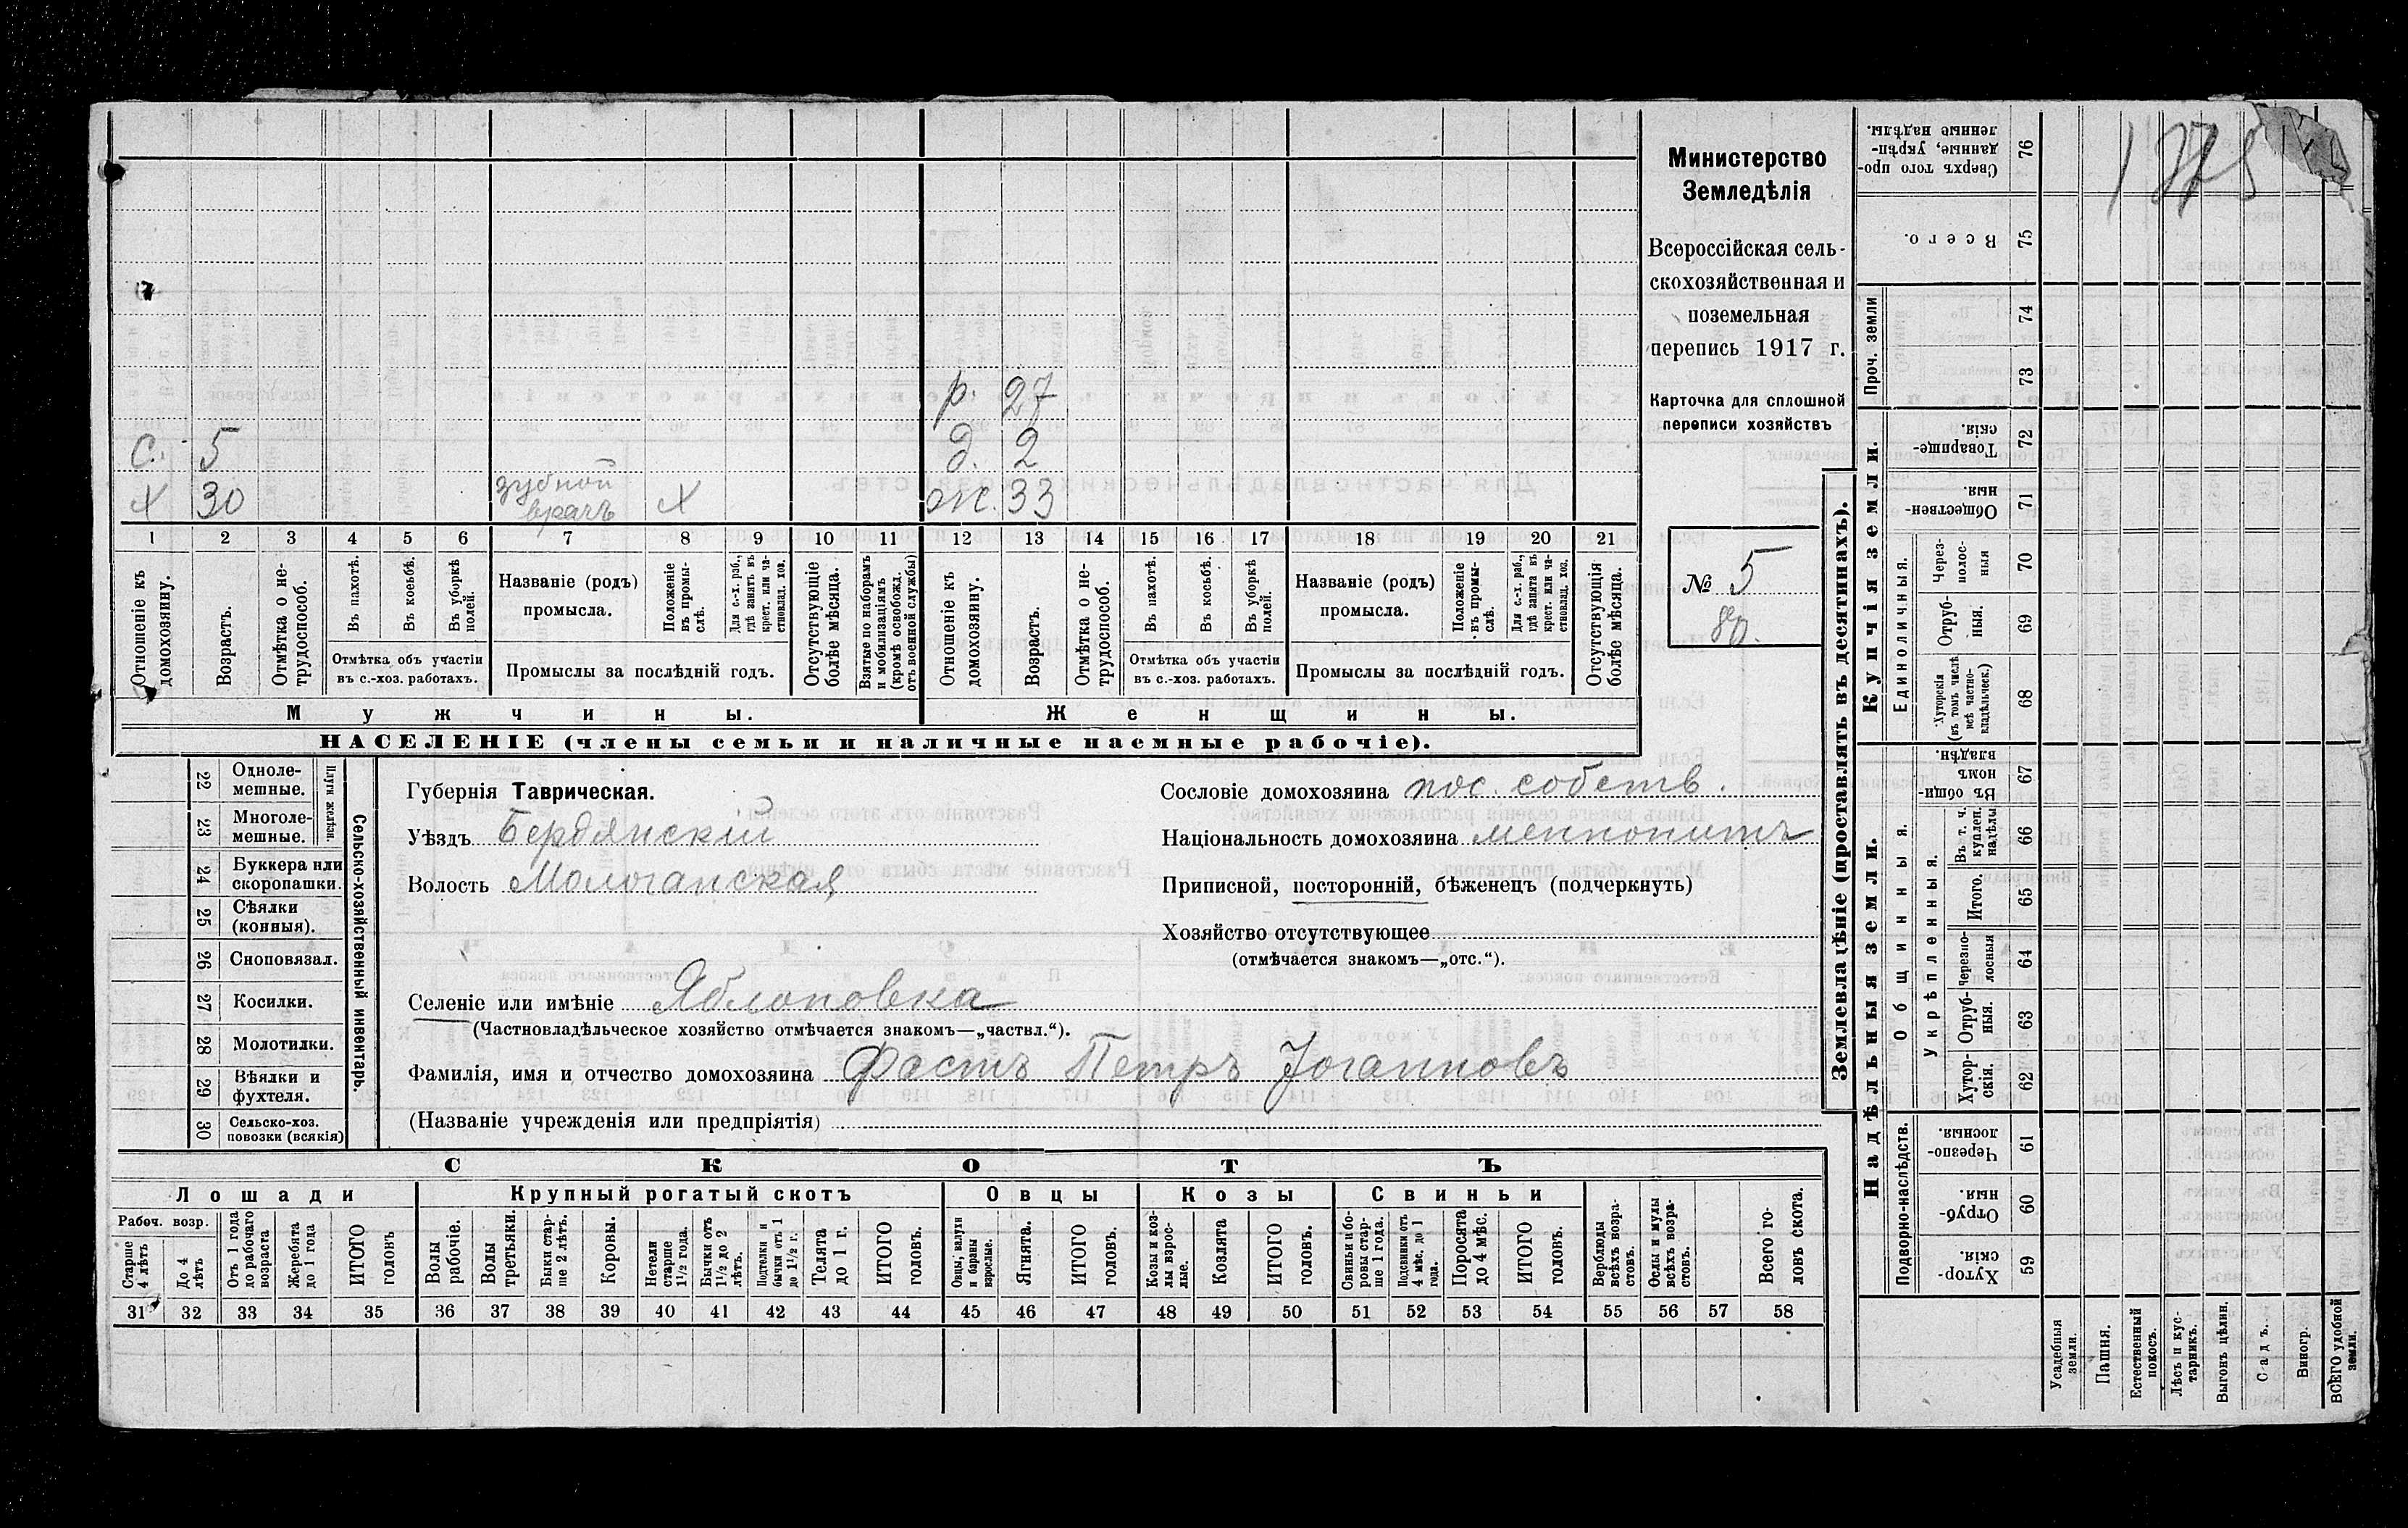 Министерство
Земледѣлія
Всероссійская сель-
скохозяйственная и
поземельная
перепись 1917 г.
Карточка для сплошной
переписи хозяйствъ
№ 5
р. 27
с. 5 д. 2
х 30 зубной врачъ х ж. 33
1 2 3 4 5 6 7 8 9 10 11 12 13 14 15 16 17 18 19 20 21
Отношеніе къ домохозяину.
Возрастъ.
Отмѣтка о не-трудоспособ.
Въ пахотѣ.
Въ косьбѣ.
Въ уборкѣ полей.
Отмѣтка объ участіи въ с.-хоз. работахъ.
Названіе (родъ) промысла.
Положеніе въ промы-слѣ.
Для с.-х. раб., гдѣ занятъ въ крест. или ча-стновлад. хоз.
Промыслы за послѣдній годъ.
Отсутствующіе болѣе мѣсяца.
Взятые по наборамъ и мобилизаціямъ (кромѣ освобожд. отъ военной службы)
Отношеніе къ домохозяину.
Возрастъ.
Отмѣтка о не-трудоспособ.
Въ пахотѣ.
Въ косьбѣ.
Въ уборкѣ полей.
Отмѣтка объ участіи въ с.-хоз. работахъ.
Названіе (родъ) промысла.
Положеніе въ промы-слѣ.
Для с.-х. раб., гдѣ занята въ крест. или ча-стновлад. хоз.
Промыслы за послѣдній годъ.
Отсутствующія болѣе мѣсяца.
Мужчины. Женщины.
НАСЕЛЕНІЕ (члены семьи и наличные наемные рабочіе).
22 Одноле-мешные.
23 Многоле-мешные.
Плуги желѣзн.
24 Буккера или скоропашки.
25 Сѣялки (конныя).
26 Сноповязал.
27 Косилки.
28 Молотилки.
29 Вѣялки и фухтеля.
30 Сельско-хоз. повозки (всякія)
Сельско-хозяйственный инвентарь.
Губернія Таврическая.
Уѣздъ Бердянскій
Волость Молочанская
Сословіе домохозяина пос. собств.
Національность домохозяина меннонитъ
Приписной, посторонній, бѣженецъ (подчеркнуть)
Хозяйство отсутствующее
(отмѣчается знакомъ—„отс.“).
Селеніе или имѣніе Яблоновка
(Частновладѣльческое хозяйство отмѣчается знакомъ—„частвл.“).
Фамилія, имя и отчество домохозяина Фастъ Петръ Јоганновъ
(Названіе учрежденія или предпріятія)
СКОТЪ
Лошади Крупный рогатый скотъ Овцы Козы Свиньи
Рабоч. возр.
Старше 4 лѣтъ
До 4 лѣтъ
Отъ 1 года до рабочаго возраста
Жеребята до 1 года
ИТОГО головъ
Волы рабочіе.
Волы третьяки.
Быки стар-ше 2 лѣтъ.
Коровы.
Нетели старше 1½ года.
Бычки отъ 1½ до 2 лѣтъ.
Подтелки и бычки отъ 1 до 1½ г.
Телята до 1 г.
ИТОГО головъ.
Овцы, валухи и бараны взрослые.
Ягнята.
ИТОГО головъ.
Козы и коз-лы взрос-лые.
Козлята
ИТОГО головъ.
Свиньи и бо-ровы стар-ше 1 года.
Подсвинки отъ 4 мѣс. до 1 года.
Поросята до 4 мѣс.
ИТОГО головъ.
Верблюды всѣхъ возра-стовъ.
Ослы и мулы всѣхъ возра-стовъ.
Всего го-ловъ скота.
31 32 33 34 35 36 37 38 39 40 41 42 43 44 45 46 47 48 49 50 51 52 53 54 55 56 57 58
Землевладѣніе (проставлять въ десятинахъ).
Купчія земли.
Надѣльныя земли.
76 Сверхъ того про-данные, укрѣп-ленные надѣлы.
75 Всего.
74
73
Проч. земли
72 Товарище-скія.
71 Обществен-ныя.
70 Через-полос-ныя
69 Отруб-ныя.
68 Хуторскія (въ томъ числѣ всѣ частно-владѣльческ.)
Единоличныя.
67 Въ общи-номъ владѣн.
66 Въ т. ч. куплен. надѣлы
65 Итого.
64 Черезпо-лосныя
63 Отруб-ныя.
62 Хутор-скія.
Укрѣпленныя.
Общинныя.
61 Черезпо-лосныя.
60 Отруб-ныя.
59 Хутор-скія.
Подворно-наслѣдств.
Усадебныя земли.
Пашня.
Естественный покосъ.
Лѣсъ и кус-тарникъ.
Выгонъ цѣлин.
Садъ.
Виногр.
ВСЕГО удобной земли.